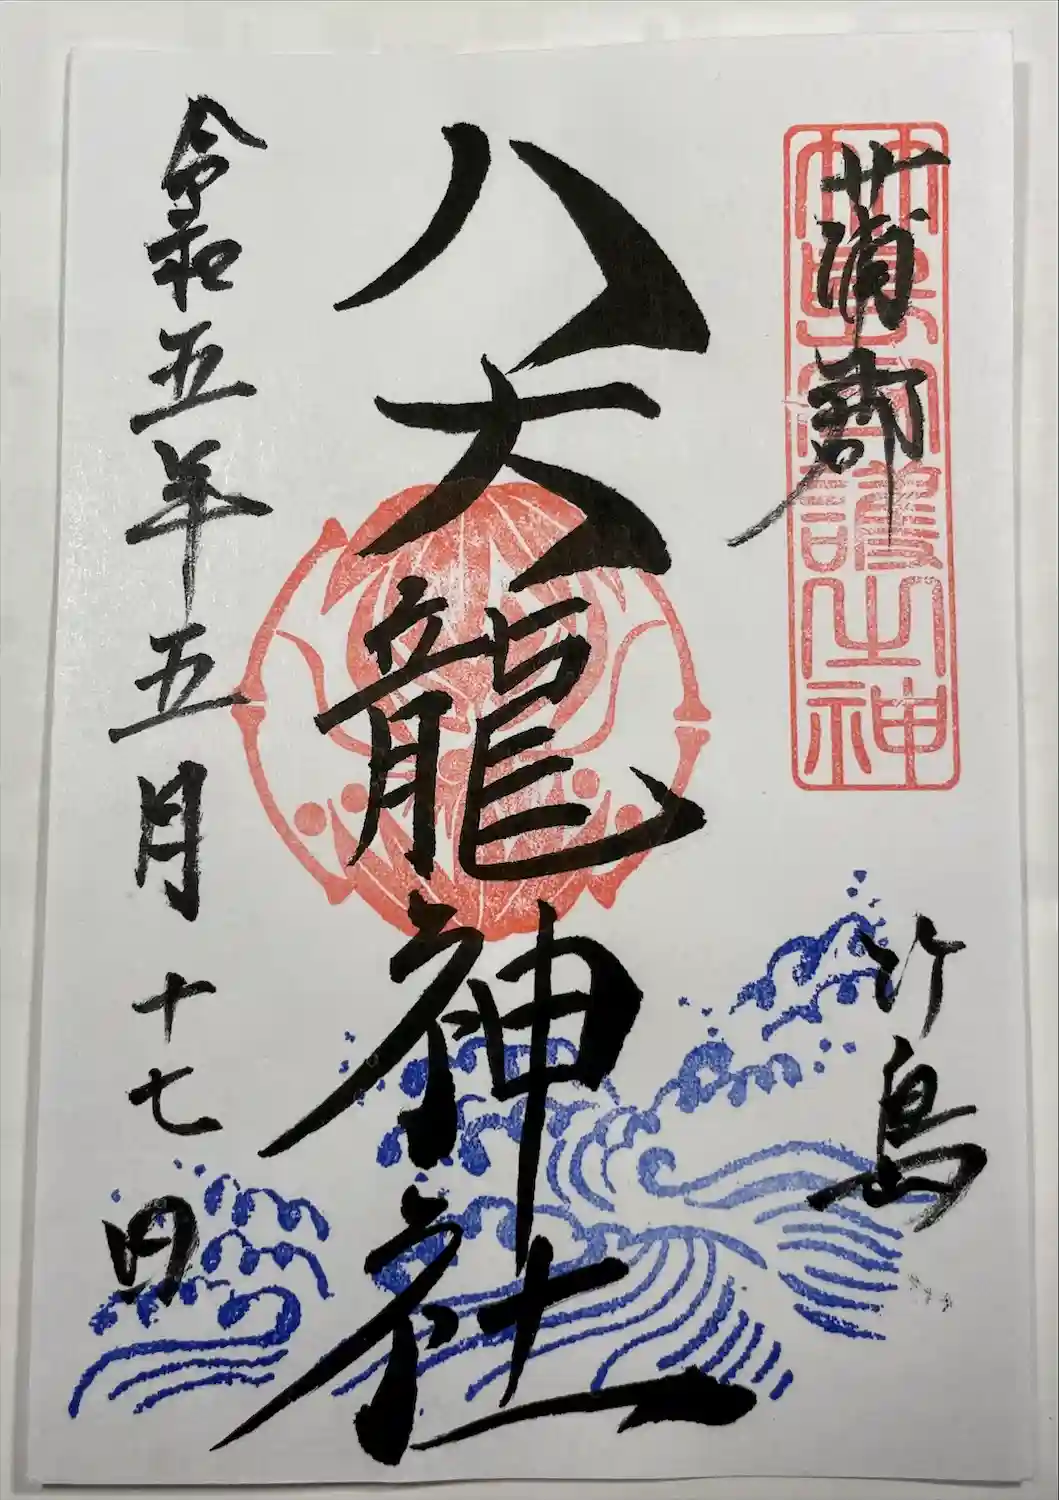 竹島守護之神
蒲郡
竹島
八大龍神社
令和五年五月十七日